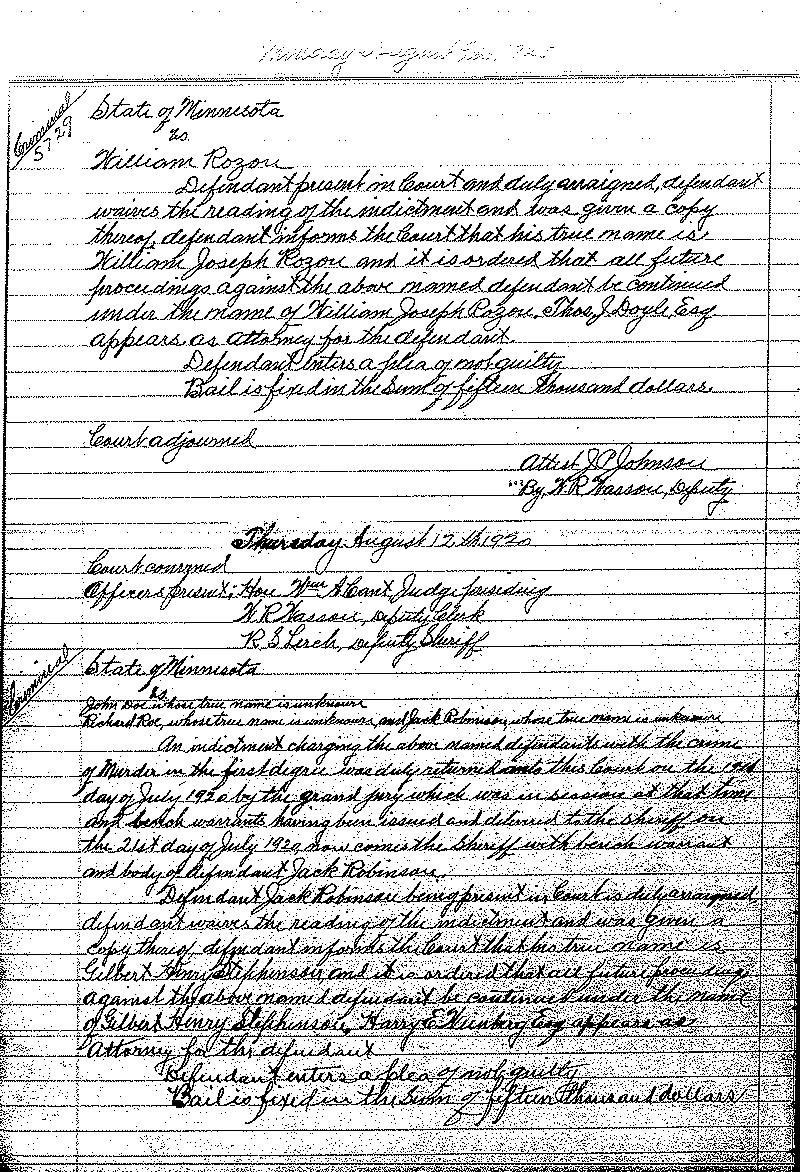 Monday August
Criminal
5729
State of Minnesota
vs.
William Rozon
Defendant present in Court and duly arraigned, defendant
waives the reading of the indictment and was given a copy
thereof, defendant informs the Court that his true name is
William Joseph Rozon and it is ordered that all future
proceedings against the above named defendant be continued
under the name of William Joseph Rozon. Thos. J. Doyle Esq
appears as attorney for the defendant.
Defendant enters a plea of not guilty
Bail is fixed in the Sum of fifteen thousand dollars.
Court adjourned
Attest J.P. Johnson
By W.R. Wasson, Deputy
Thursday August 12th 1920
Court convened
Officers present; Hon Wm A Cant Judge presiding
W R Wasson, Deputy Clerk
R S Lerch, Deputy Sheriff
Criminal
State of Minnesota
vs.
John Doe whose true name is unknown
Richard Roe, whose true name is unknown, and Jack Robinson, whose true name is unknown
An indictment charging the above named defendants with the crime
of Murder in the first degree was duly returned into this Court on the
day of July 1920 by the grand jury which was in session at that time
and bench warrants having been issued and delivered to the Sheriff on
the 21st day of July 1920, now comes the Sheriff with bench warrant
and body of defendant Jack Robinson.
Defendant Jack Robinson being present in Court is duly arraigned,
defendant waives the reading of the indictment and was given a
copy thereof defendant informs the Court that his true name is
Gilbert Henry Stephenson and it is ordered that all future proceedings
against the above named defendant be continued under the name
of Gilbert Henry Stephenson. Harry E Weinberg Esq appears as
Attorney for the defendant
Defendant enters a plea of not guilty
Bail is fixed in the Sum of fifteen thousand dollars